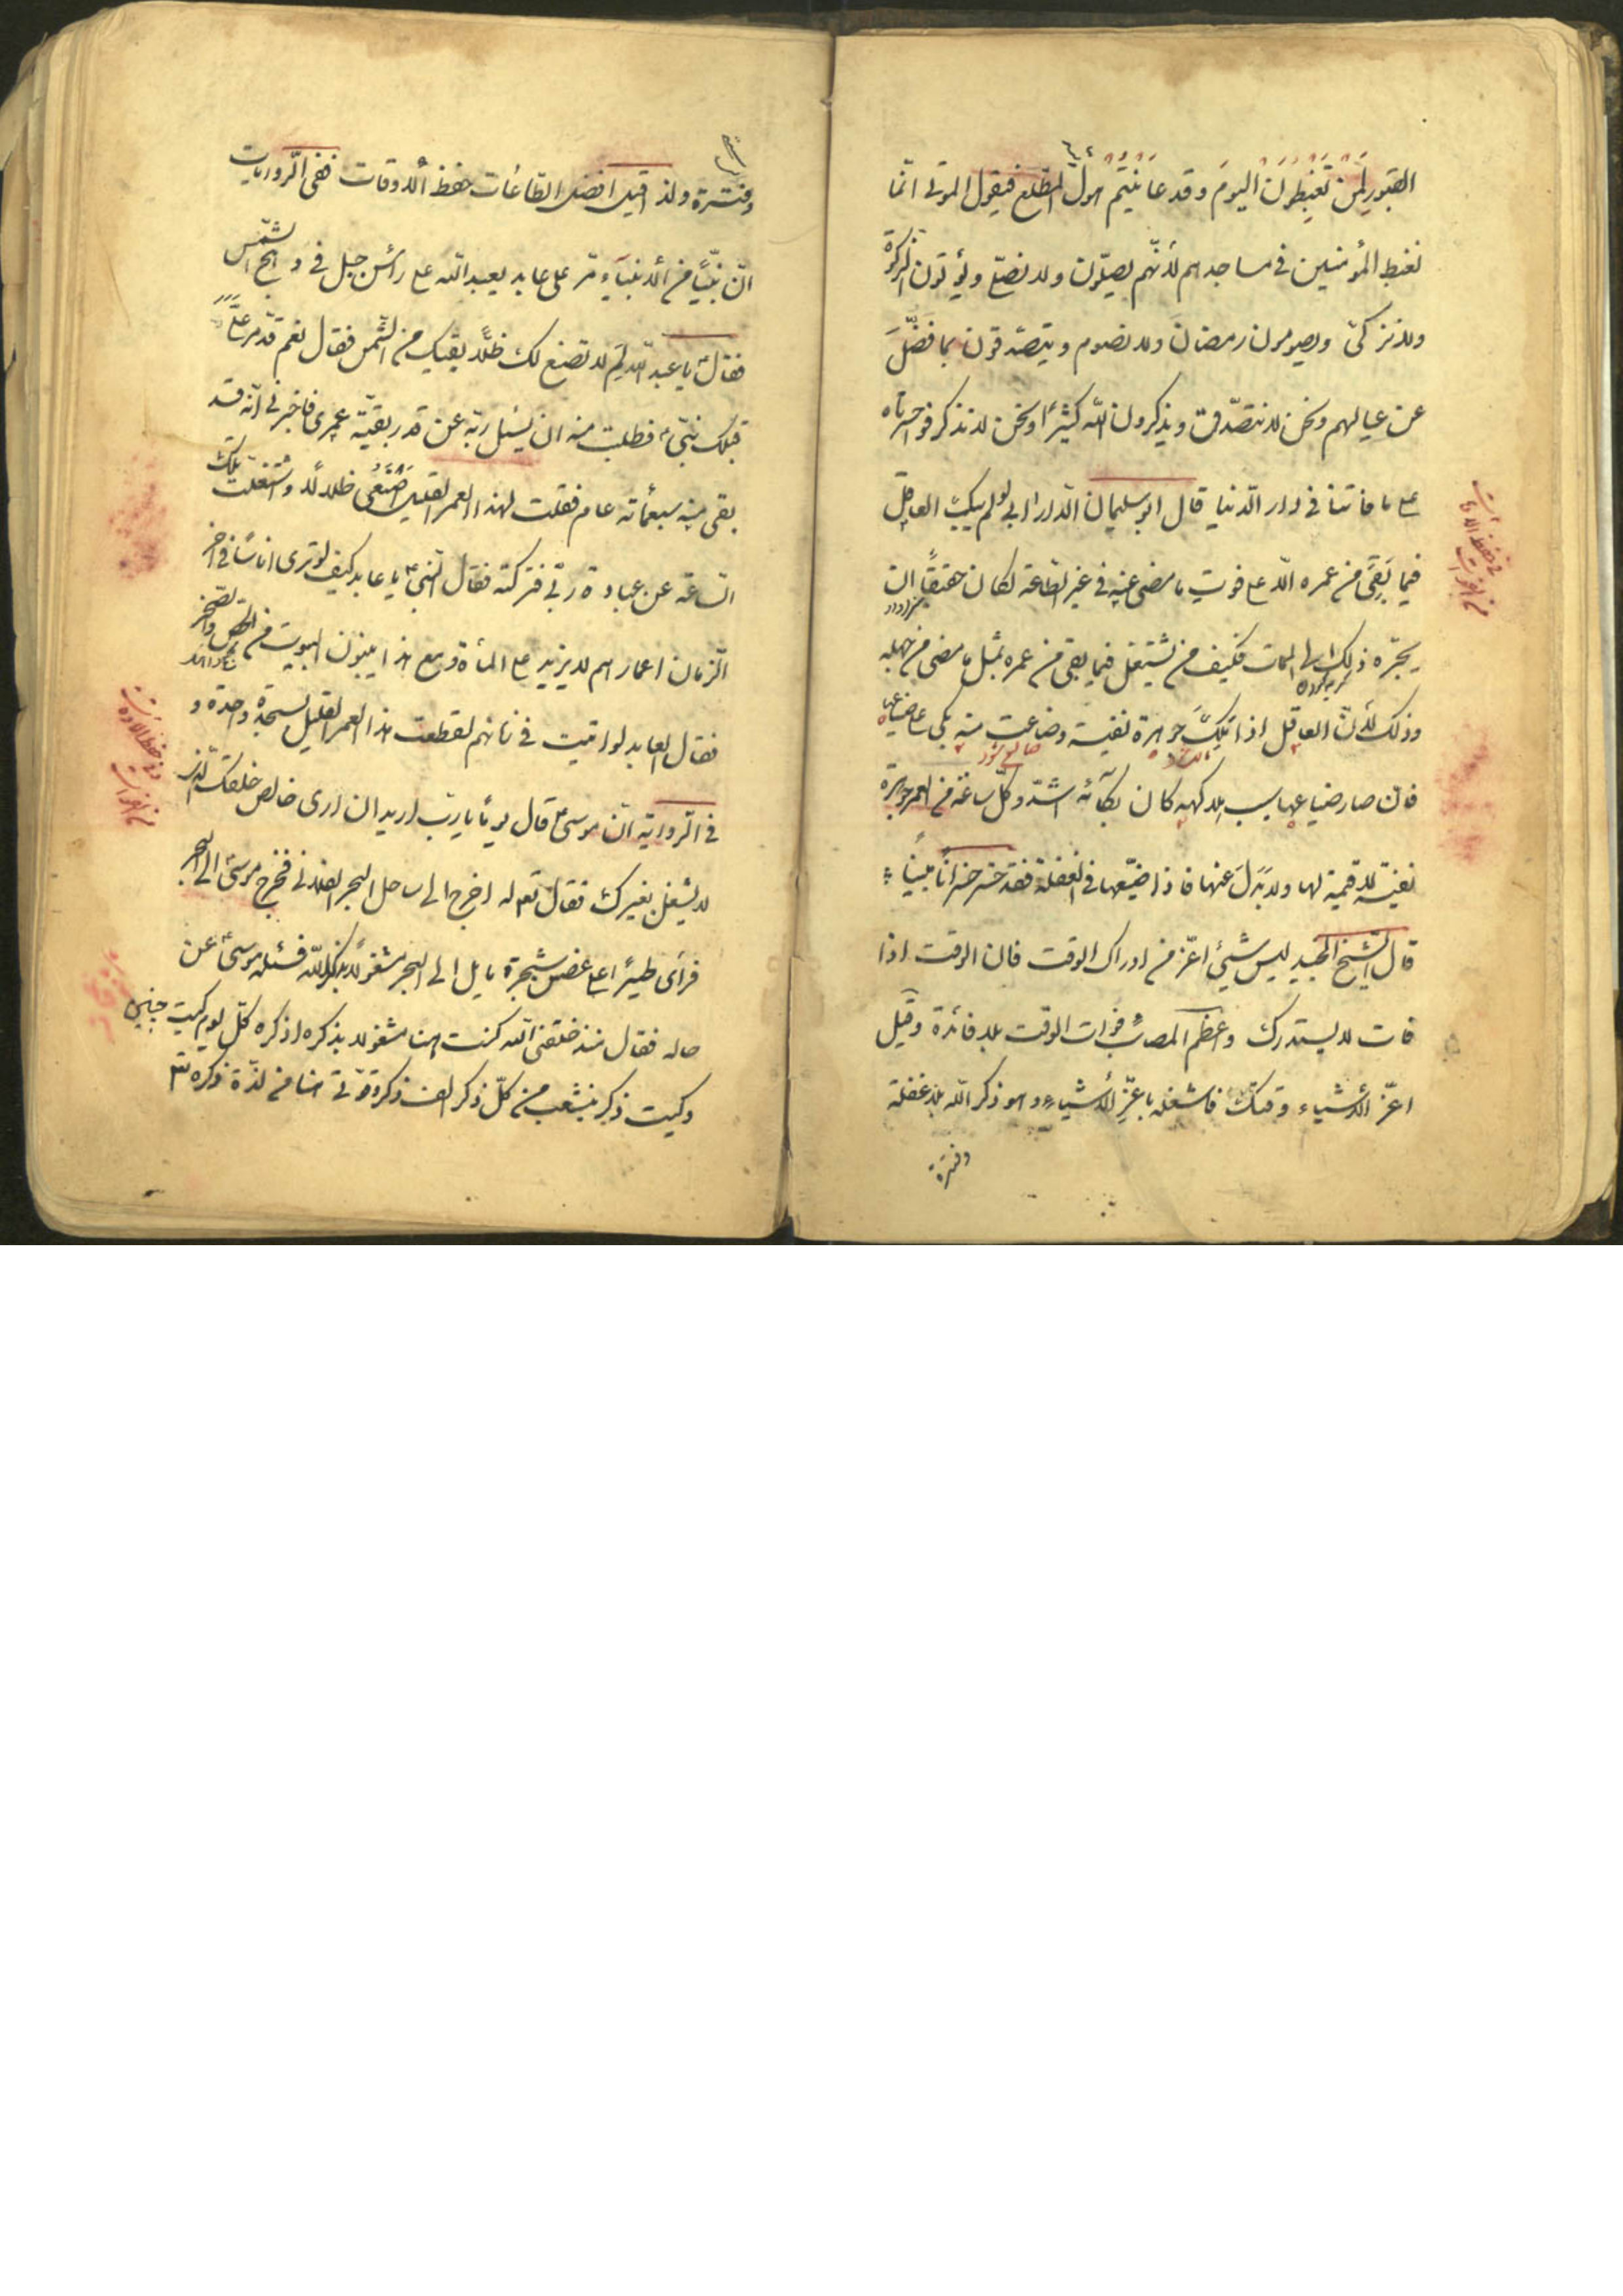 القبور لمن تغبطون اليوم وقد عاينتم هول المطلع فيقول الموتى انما
نغبط المؤمنين في مساجدهم لأنهم يصلون ولا نصلي ويؤتون الزكوة
ولا نزكي ويصومون رمضان ولا نصوم ويتصدقون بما فضل
عن عيالهم ونحن لا نتصدق ويذكرون الله كثيرا ونحن لا نذكر فوا حسرتاه
على ما فاتنا في دار الدنيا قال ابو سليمان الداراني لو لم يبك العاقل
فيما بقى من عمره الا على فوت ما مضى عنه في غير الطاعة لكان حقيقا ان
يحزنه ذلك الى الممات فكيف من يشتغل فيما بقى من عمره بمثل ما مضى من جهله
وذلك لأن العاقل اذا ملك جوهرة نفيسة وضاعت منه بكى على ضياعها
فان صار ضياعها سبب هلاكه كان بكائه اشد وكل ساعة من العمر جوهرة
نفيسة لا قيمة لها ولا بدل عنها فاذا ضيعها في الغفلة فقد خسر خسرانا مبينا
قال الشيخ الجنيد ليس شيئ اعز من ادراك الوقت فان الوقت اذا
فات لا يستدرك واعظم المصائب فوات الوقت بلا فائدة وقيل
اعز الأشياء وقتك فاشغله باعز الأشياء وهو ذكر الله بلا غفلة
وفترة
وفترة ولذا قيل افضل الطاعات حفظ الأوقات ففي الروايات
ان نبيا من الأنبياء مر على عابد يعبد الله على رأس جبل في وهج الشمس
فقال يا عبد الله لم لا تصنع لك ظلا يقيك من الشمس فقال نعم قد مر علي
قبلك نبي فطلبت منه ان يسئل ربه عن قدر بقية عمري فاخبرني انه قد
بقى منه سبعمائة عام فقلت لهذا العمر القليل اصنع ظلالا واشتغلت بتلك
الساعة عن عبادة ربي فتركته فقال النبي يا عابد كيف لو ترى اناسا في آخر
الزمان اعمارهم لا يزيد على المأة ومع هذا يبنون البيوت من الجص والصخر
فقال العابد لو اقمت في زمانهم لقطعت هذا العمر القليل بسجدة واحدة و
في الرواية ان موسى قال يوما يا رب اريد ان ارى خالص خلقك الذي
لا يشتغل بغيرك فقال تعه له اخرج الى ساحل البحر الفلاني فخرج موسى الى البحر
فرأى طيرا على غصن شجرة مايل الى البحر مشغولا بذكر الله فسئله موسى عن
حاله فقال منذ خلقني الله كنت هنا مشغولا بذكره اذكره كل يوم كيت
وكيت ذكر ينشعب من كل ذكر الف ذكر وقوتي هنا من لذة ذكره تع